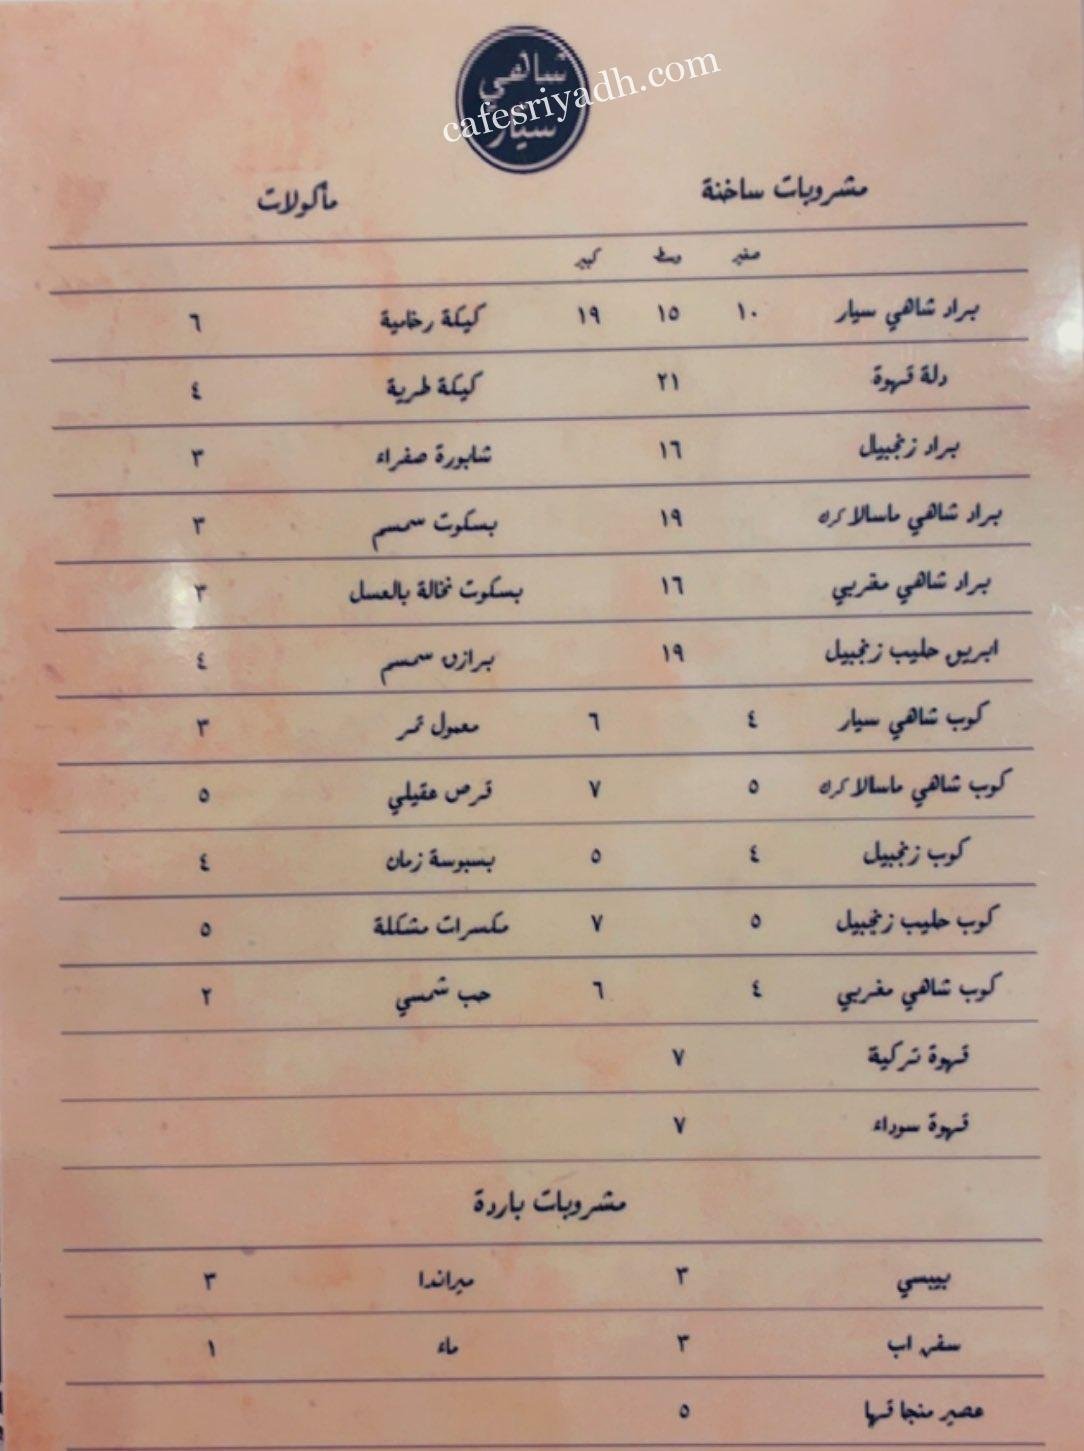 شاهي
سيار
cafesriyadh.com
مشروبات ساخنة مأكولات
صغير وسط كبير
براد شاهي سيار ١٠ ١٥ ١٩ كيكة رخامية ٦
دلة قهوة ٢١ كيكة طرية ٤
براد زنجبيل ١٦ شابورة صفراء ٣
براد شاهي ماسالا كرك ١٩ بسكوت سمسم ٣
براد شاهي مغربي ١٦ بسكوت نخالة بالعسل ٣
ابريق حليب زنجبيل ١٩ برازق سمسم ٤
كوب شاهي سيار ٤ ٦ معمول تمر ٣
كوب شاهي ماسالا كرك ٥ ٧ قرص عقيلي ٥
كوب زنجبيل ٤ ٥ بسبوسة زمان ٤
كوب حليب زنجبيل ٥ ٧ مكسرات مشكلة ٥
كوب شاهي مغربي ٤ ٦ حب شمسي ٢
قهوة تركية ٧
قهوة سوداء ٧
مشروبات باردة
بيبسي ٣ ميراندا ٣
سفن اب ٣ ماء ١
عصير منجا قها ٥